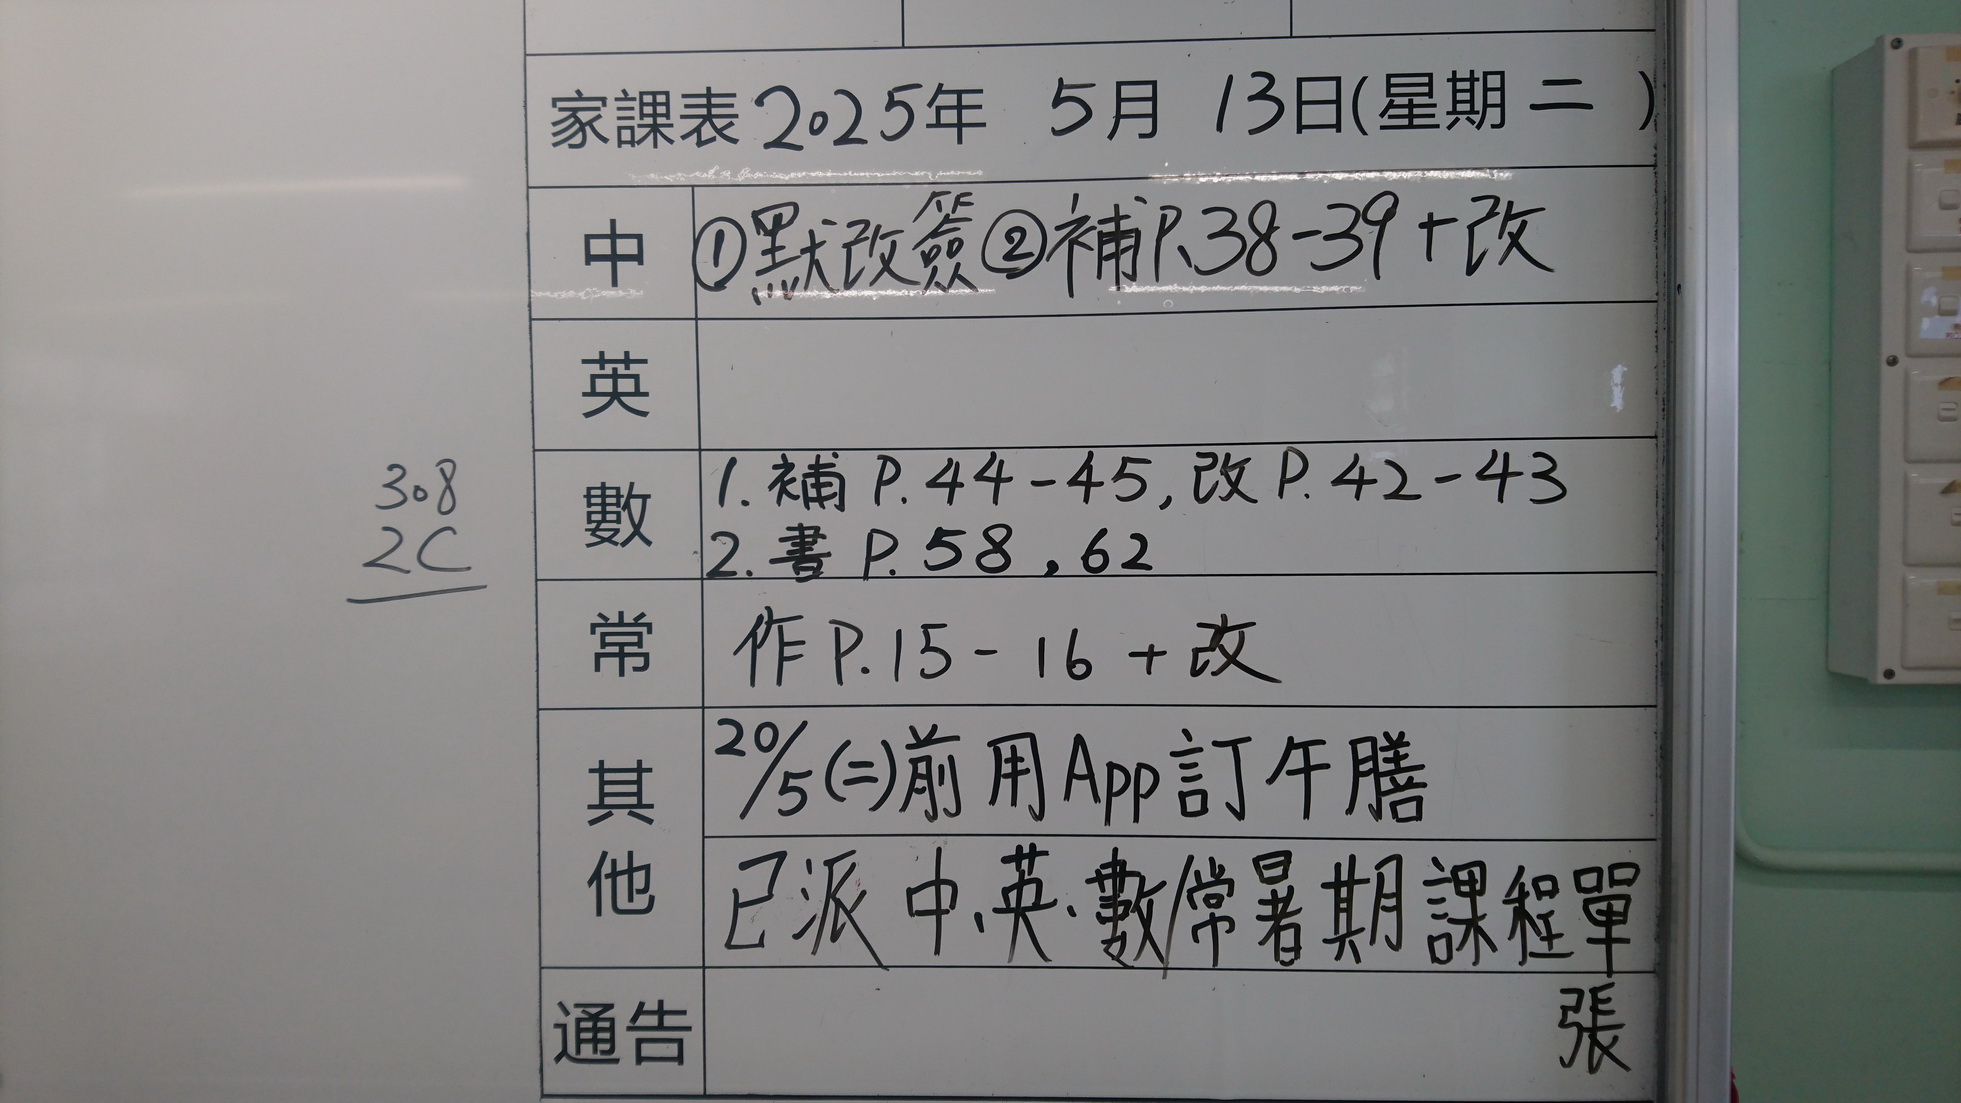 家課表2025年 5月 13日(星期二)
中 ①默改簽②補P.38-39+改
英
數 1.補P.44-45,改P.42-43
2.書P.58,62
常 作P.15-16+改
其他 20/5(二)前用App訂午膳
已派中、英、數/常暑期課程單
通告 張
308
2C